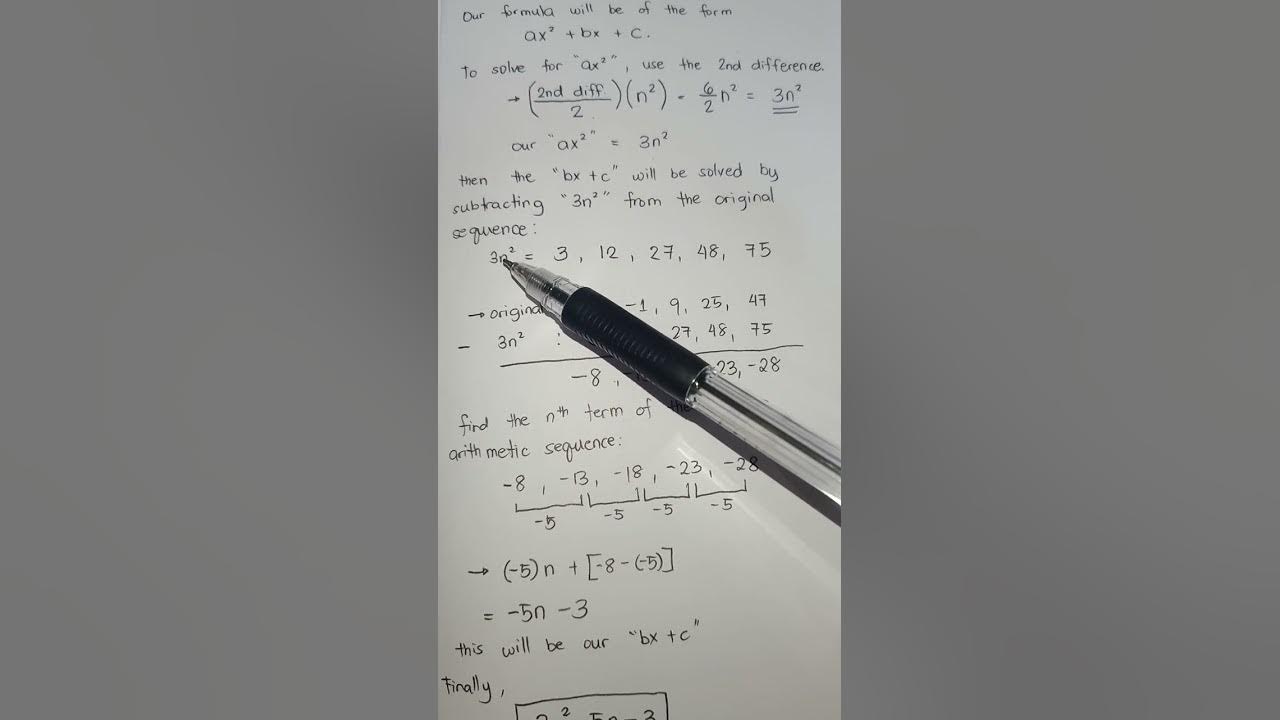 Our formula will be of the form
ax² + bx + c.
To solve for "ax²", use the 2nd difference.
→ (2nd diff. / 2)(n²) - 6/2 n² = 3n²
our "ax²" = 3n²
then the "bx + c" will be solved by
subtracting "3n²" from the original
sequence:
3n² = 3, 12, 27, 48, 75
→ original -1, 9, 25, 47
- 3n² : 27, 48, 75
-8, 23, -28
find the nth term of the
arithmetic sequence:
-8, -13, -18, -23, -28
-5 -5 -5 -5
→ (-5)n + [-8 - (-5)]
= -5n - 3
this will be our "bx + c"
Finally,
2 5n - 3